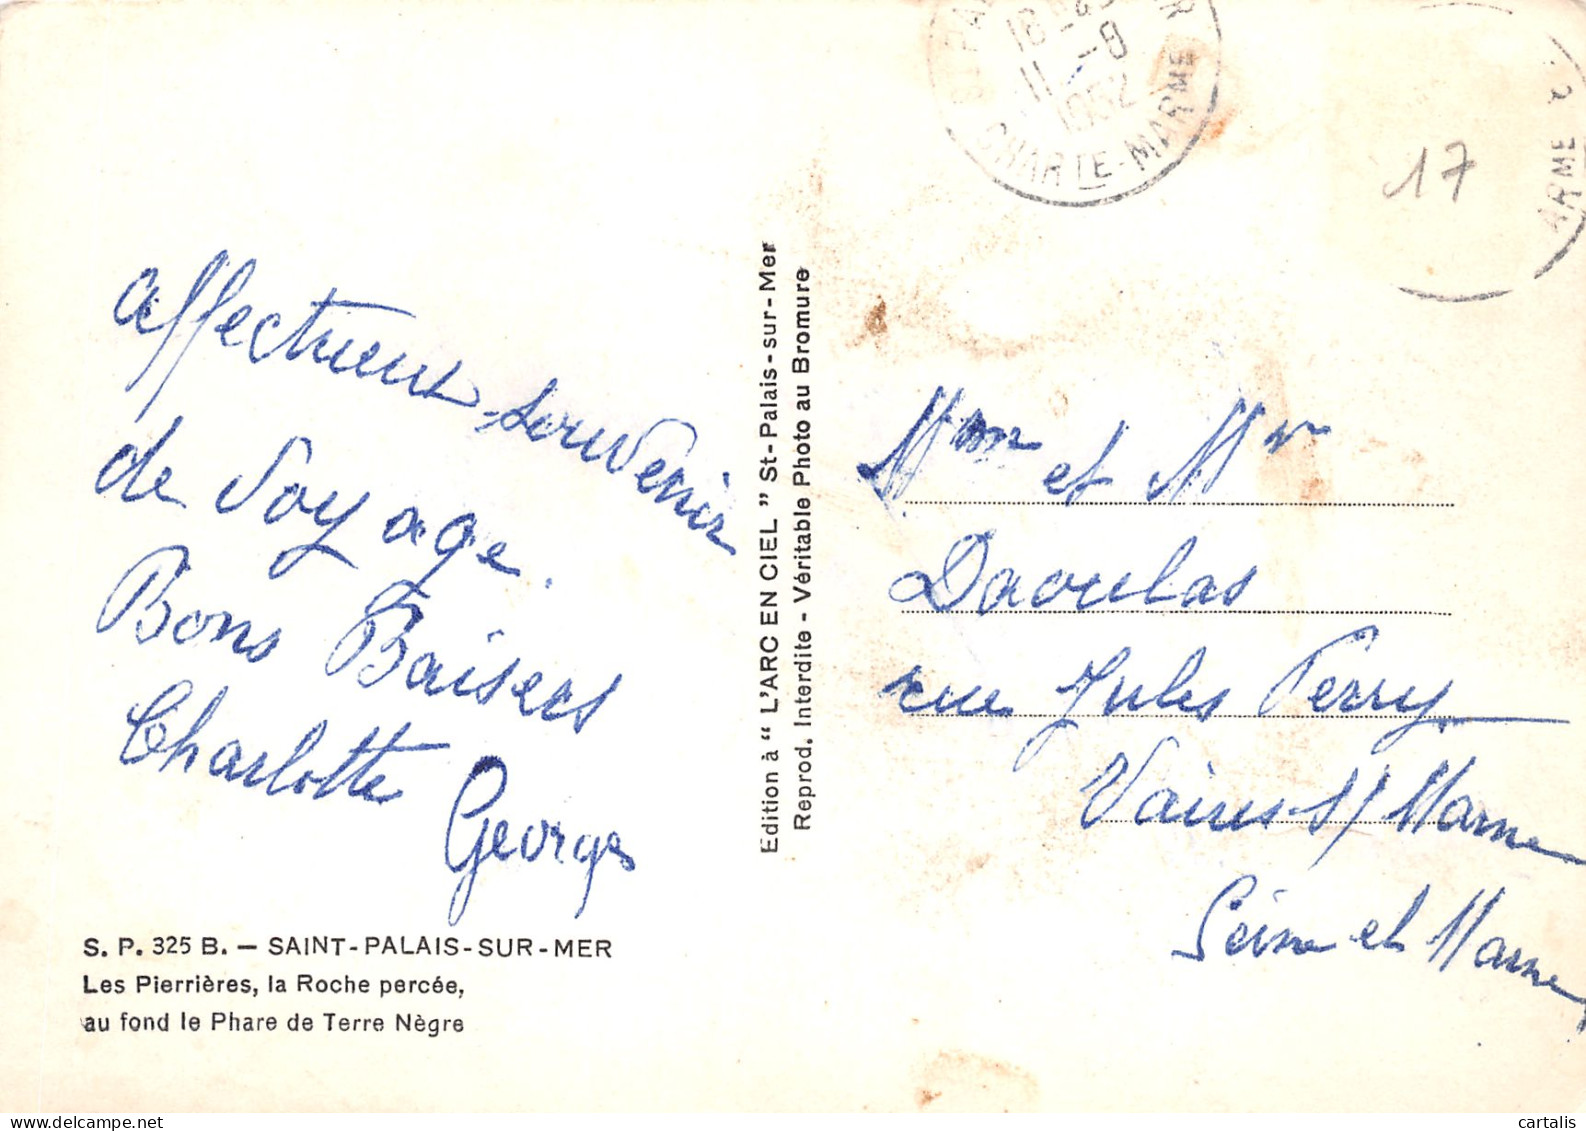 affectueux souvenir
de Voyage.
Bons Baisers
Charlotte
Georges
S. P. 325 B. — SAINT-PALAIS-SUR-MER
Les Pierrières, la Roche percée,
au fond le Phare de Terre Nègre
Edition à “ L'ARC EN CIEL ” St-Palais-sur-Mer
Reprod. Interdite - Véritable Photo au Bromure
11 -8
1952
CHARTE-MARME
ARME
17
Mme et Mr
Daoulas
rue Jules Ferry
Vaires s/ Marne
Seine et Marne
cartalis